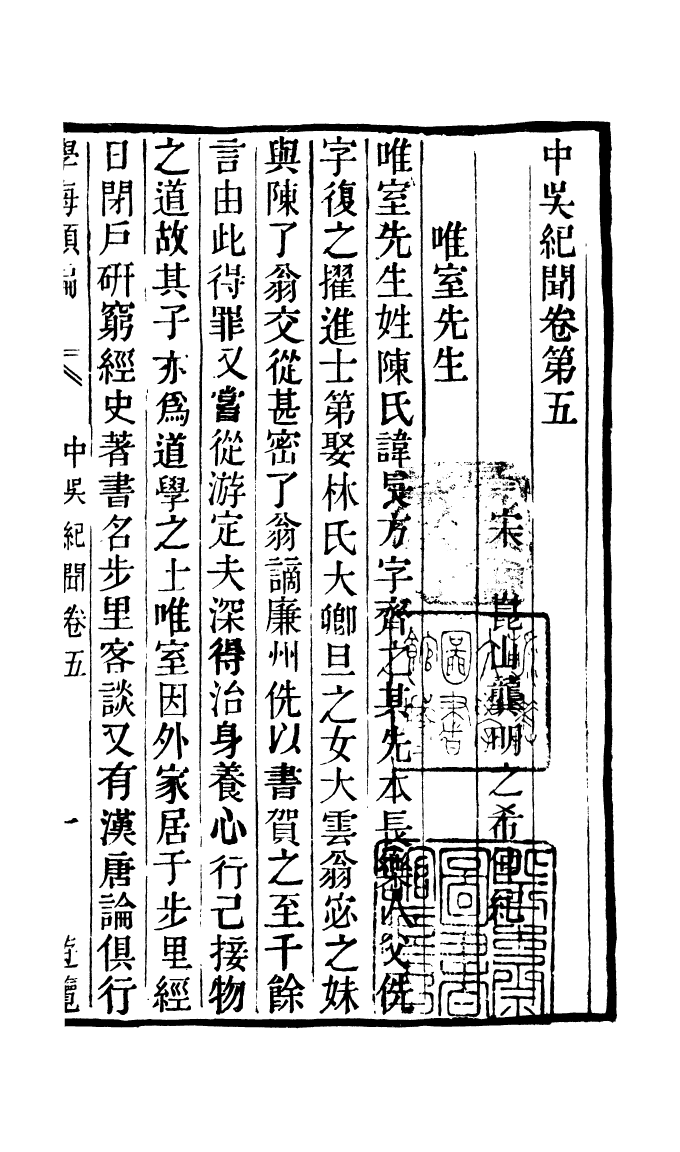 中吳紀聞卷第五
宋　崑山龔明之希仲紀
唯室先生
唯室先生姓陳氏諱長方字齊之其先本長樂人父侁
字復之擢進士第娶林氏大卿旦之女大雲翁宓之妹
與陳了翁交從甚密了翁謫廉州侁以書賀之至千餘
言由此得罪又嘗從游定夫深得治身養心行己接物
之道故其子亦爲道學之士唯室因外家居于步里經
日閉戶硏窮經史著書名步里客談又有漢唐論俱行
學海類編　中吳紀聞卷五　一　遊覽